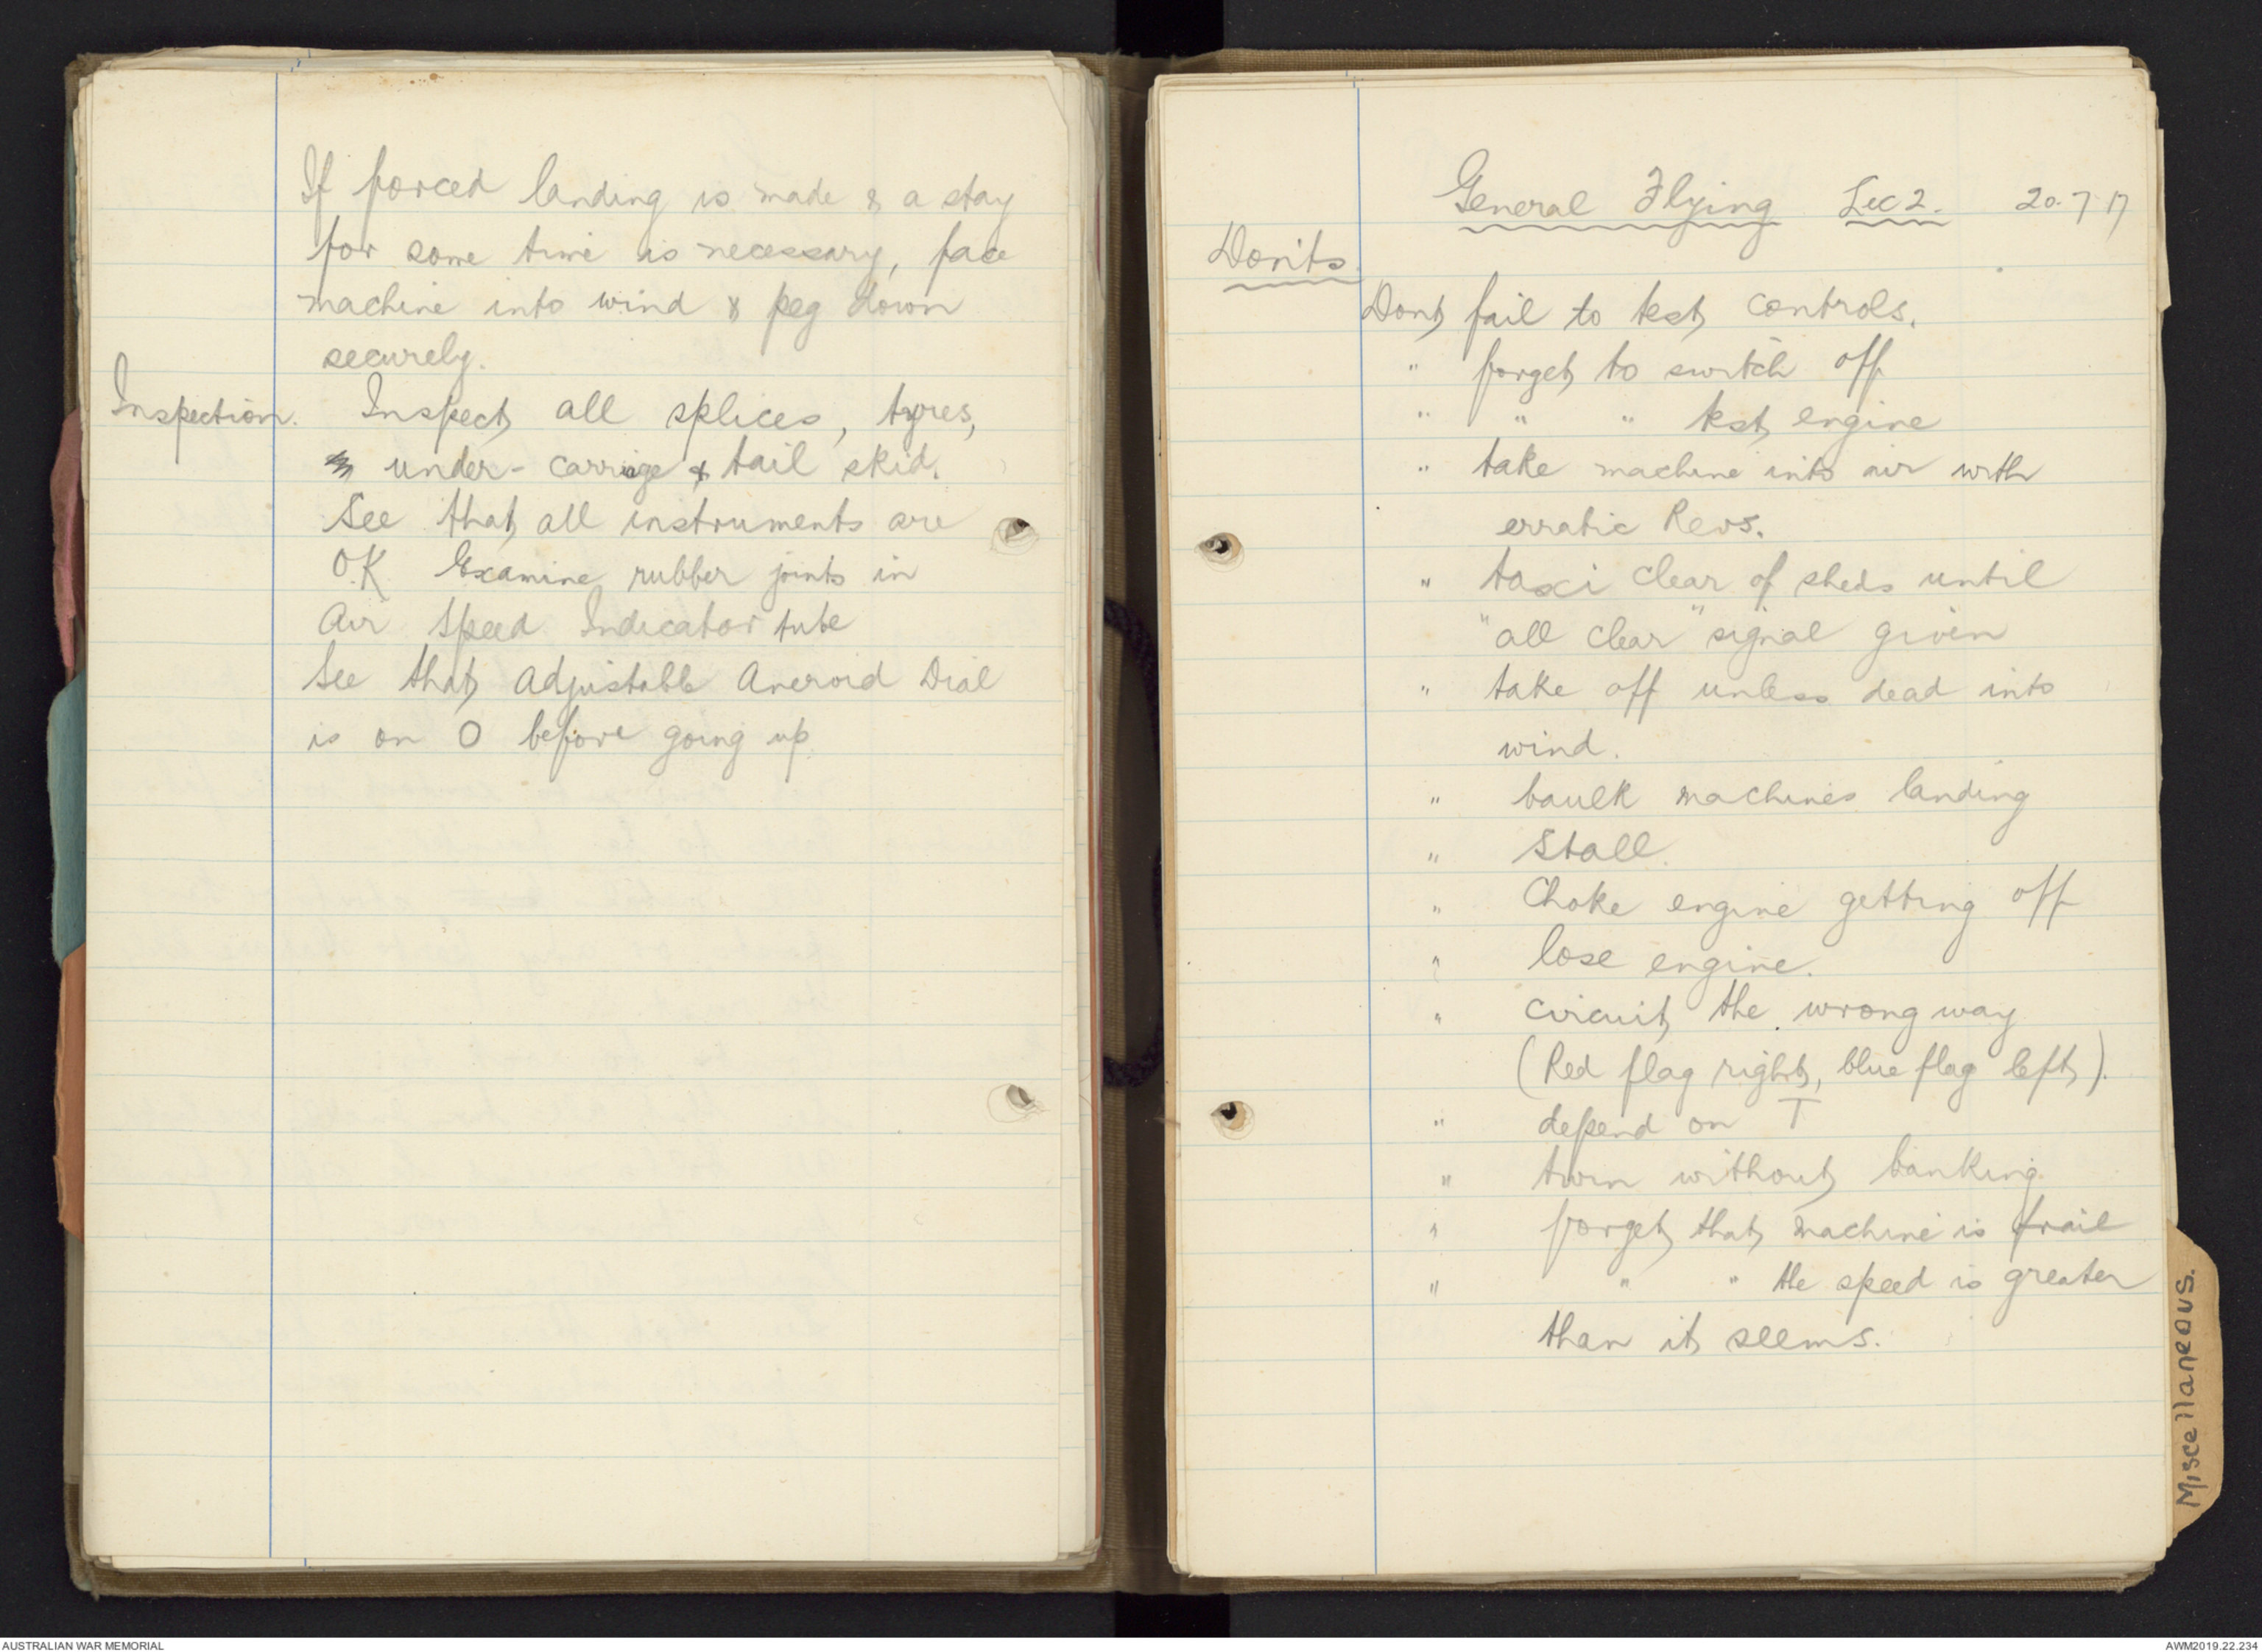 If forced landing is made & a stay
for some time is necessary, face
machine into wind & peg down
securely.
Inspection. Inspect all splices, tyres,
under-carriage & tail skid.
See that all instruments are
O.K. Examine rubber joints in
Air Speed Indicator tube
See that Adjustable Aneroid Dial
is on O before going up.
General Flying Lec 2. 20.7.17
Don'ts.
Dont fail to test controls.
" forget to switch off
" " " test engine
" take machine into air with
erratic Revs.
" taxi clear of sheds until
"all clear" signal given
" take off unless dead into
wind.
" baulk machines landing
" Stall.
" Choke engine getting off
" lose engine.
" circuit the wrong way
(Red flag right, blue flag left).
" depend on T
" turn without banking.
" forget that machine is frail
" " " the speed is greater
than it seems.
Miscellaneous.
AUSTRALIAN WAR MEMORIAL
AWM2019.22.234